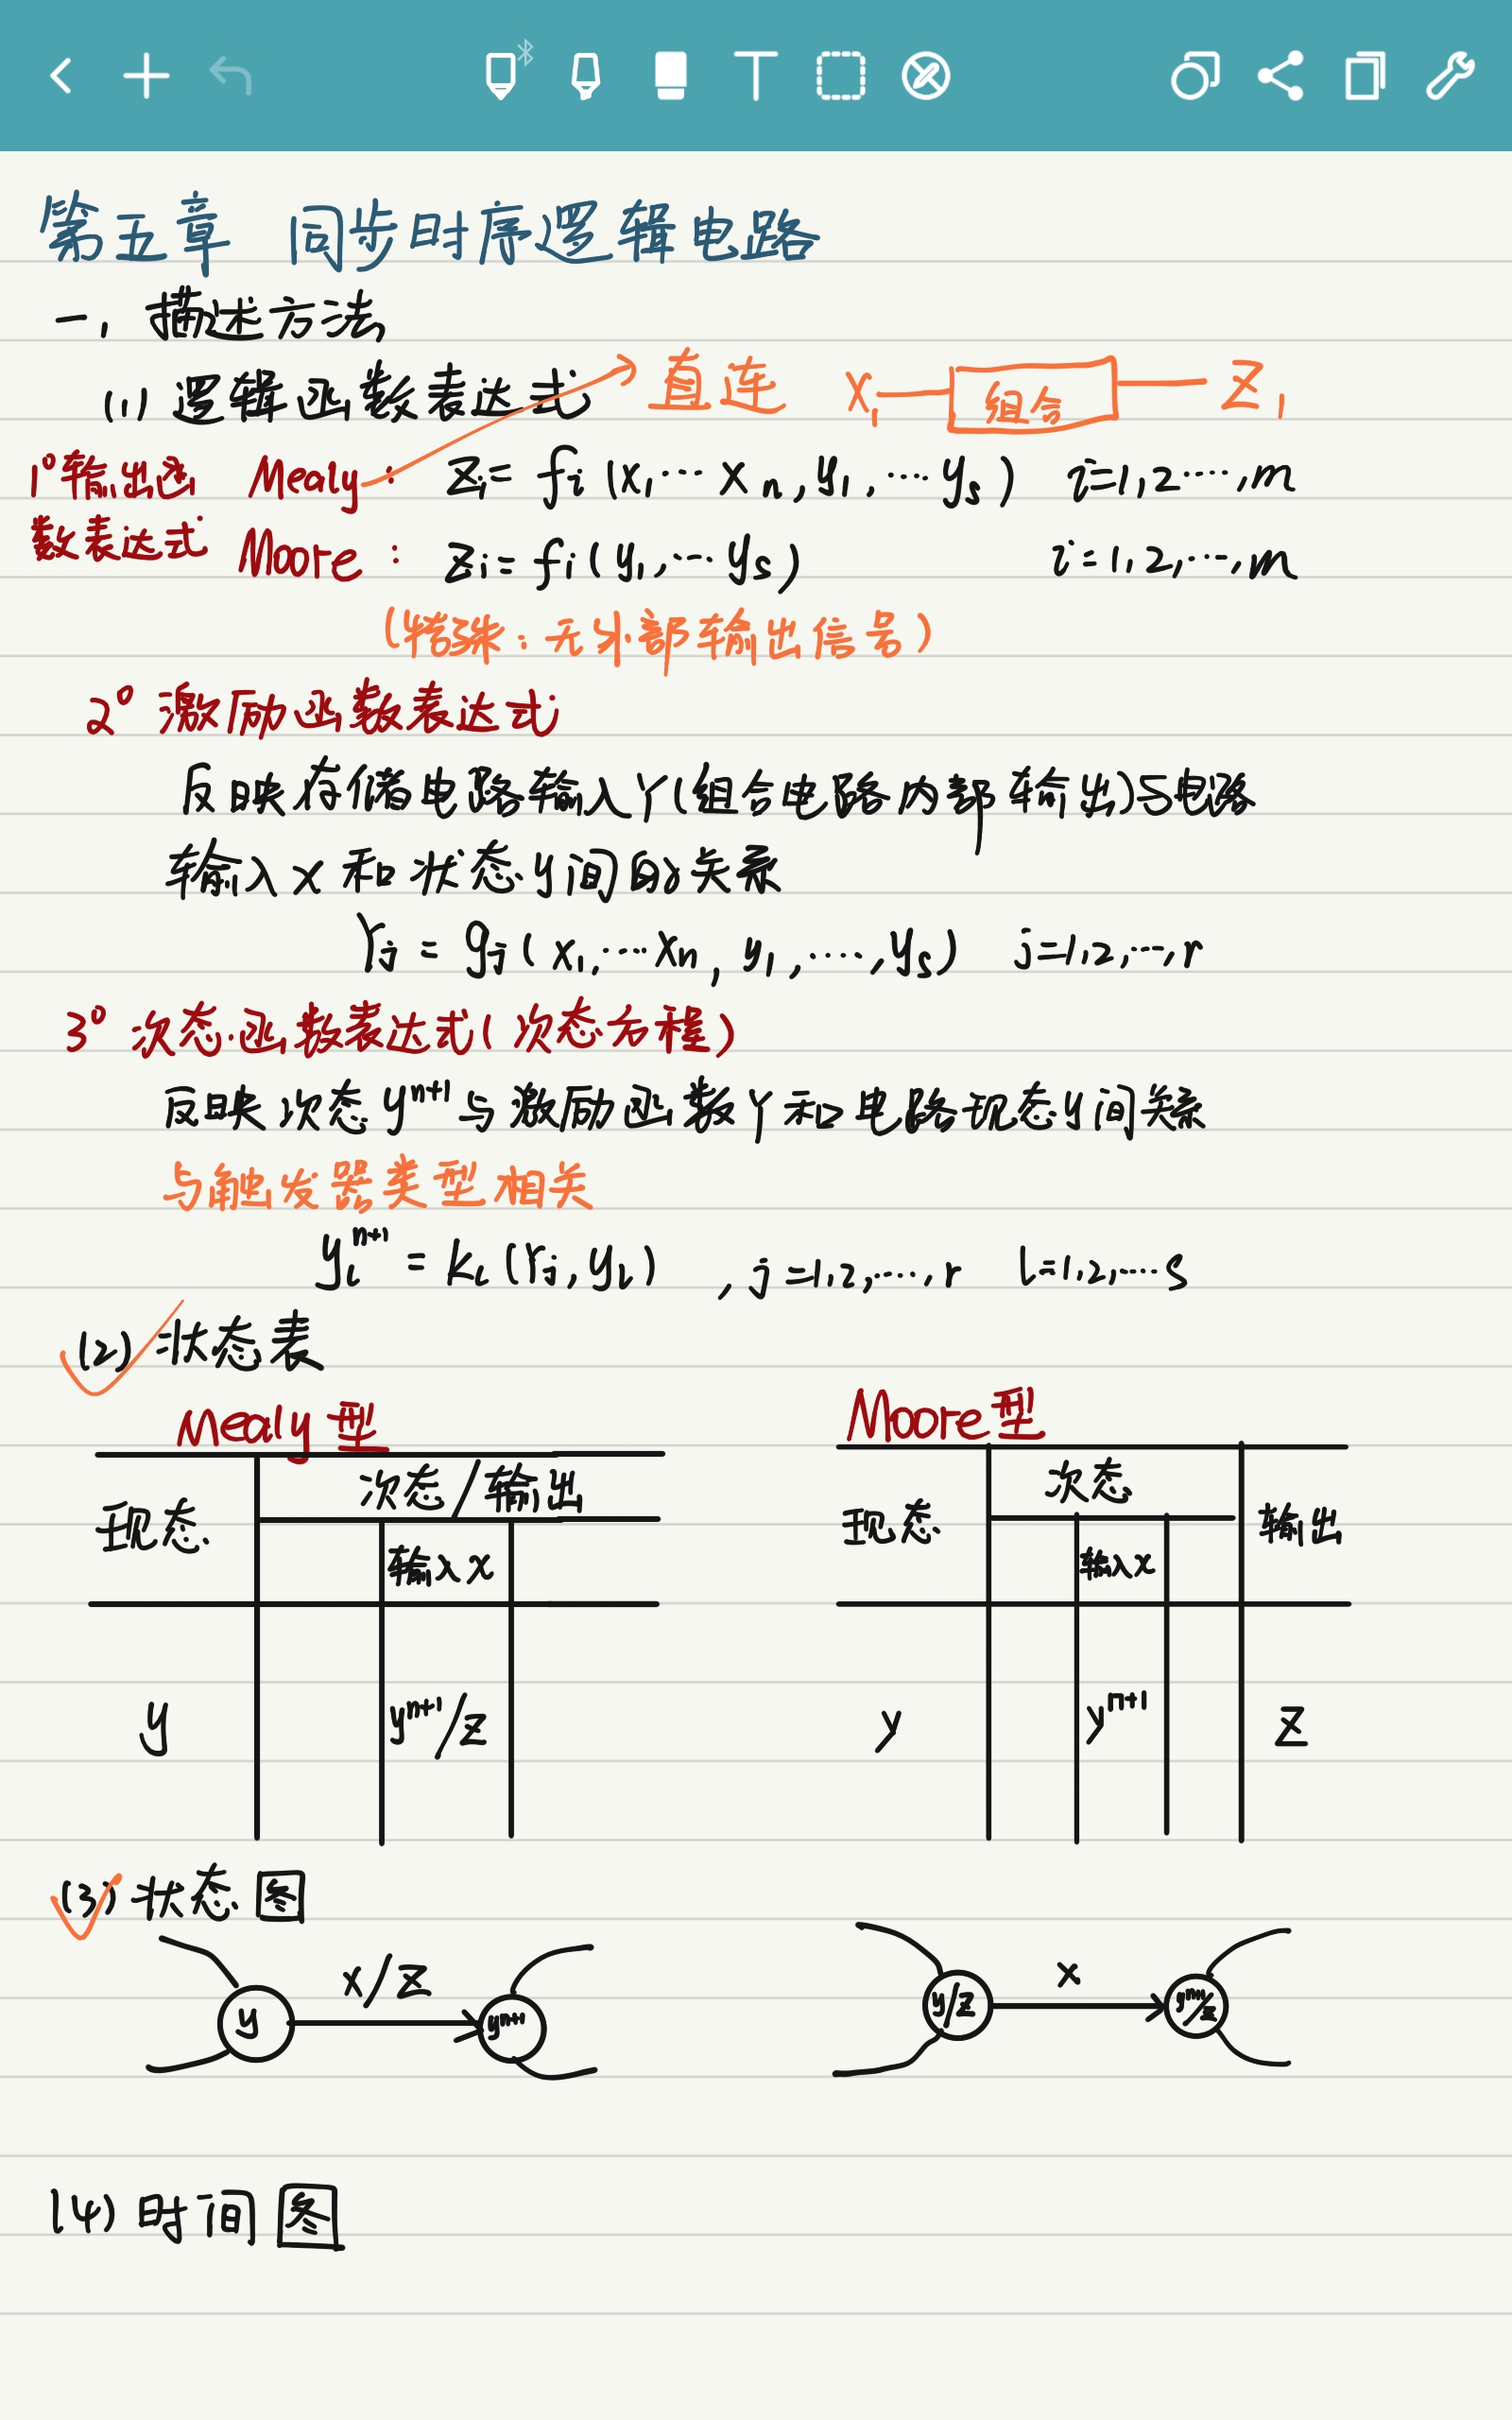 第五章 同步时序逻辑电路
一、描述方法
(1) 逻辑函数表达式 直连 X₁ 组合 Z₁
1° 输出函数表达式
Mealy: Zᵢ = fᵢ (x₁⋯xₙ, y₁,⋯yₛ) i=1,2⋯,m
Moore: Zᵢ = fᵢ (y₁,⋯yₛ) i=1,2,⋯,m
(特殊:无外部输出信号)
2° 激励函数表达式
反映存储电路输入Y(组合电路内部输出)与电路
输入x和状态y间的关系
Yⱼ = gⱼ (x₁,⋯xₙ, y₁,⋯,yₛ) j=1,2,⋯,r
3° 次态函数表达式(次态方程)
反映次态yⁿ⁺¹与激励函数Y和电路现态y间关系
与触发器类型相关
y_lⁿ⁺¹ = k_l (Yⱼ, y_l) , j=1,2,⋯,r l=1,2,⋯s
(2) 状态表
Mealy型
现态 次态/输出
输入x
y yⁿ⁺¹/Z
Moore型
现态 次态 输出
输入x
y yⁿ⁺¹ Z
(3) 状态图
y x/Z yⁿ⁺¹
y/Z x yⁿ⁺¹/Z
(4) 时间图